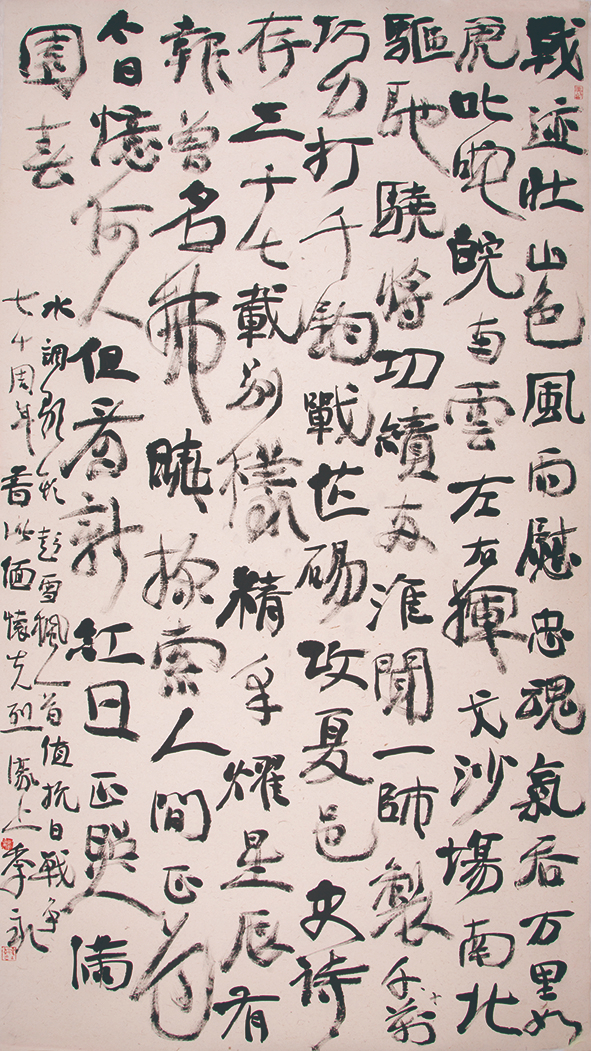 戰迹壯山色風雨慰忠魂氣吞万里如
虎叱咤皖南雲左右揮戈沙場南北
驅馳驍將功績淮聞一師製
巧力打千鈞戰芒碭攻夏邑史詩
存三十七載別樣精采耀星辰有
報曾名拂曉探索人間正道
今日憶何人但看新紅日正照滿
園春
水調歌頭彭雪楓一首值抗日戰争
七十周年書此緬懷先烈濠上季永